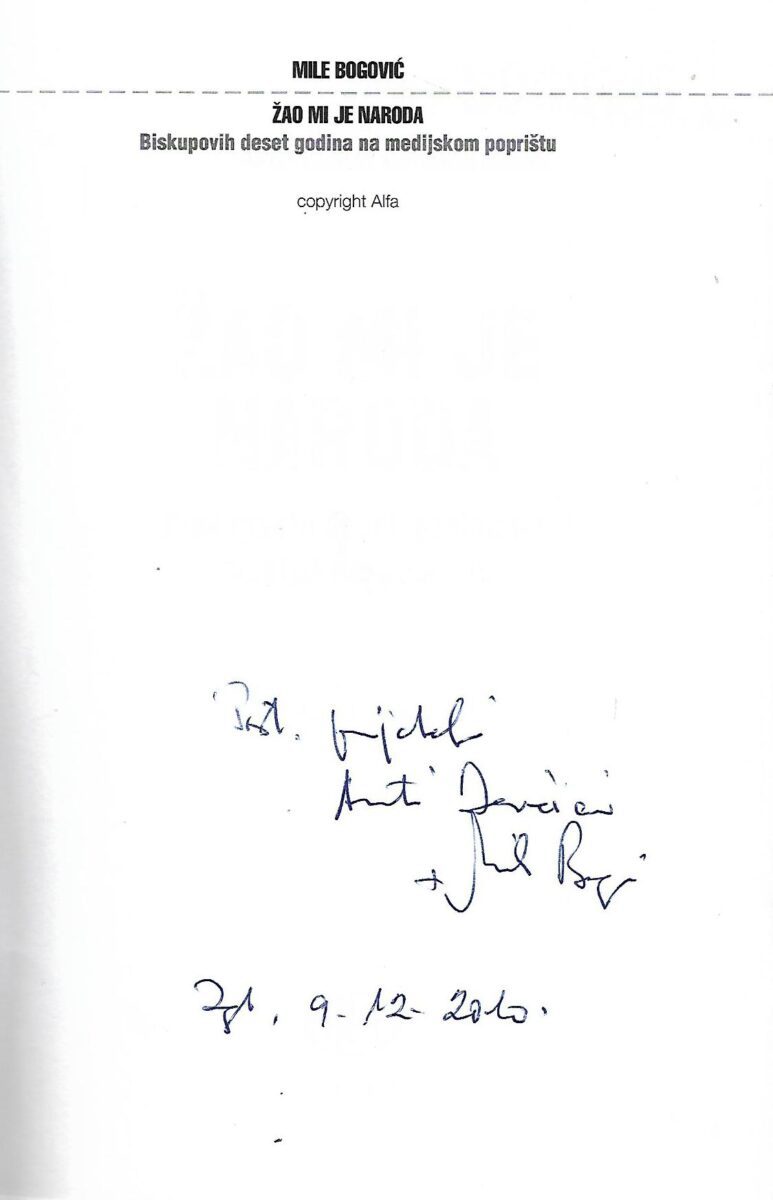 MILE BOGOVIĆ
ŽAO MI JE NARODA
Biskupovih deset godina na medijskom poprištu
copyright Alfa
ŽAO MI JE
NARODA
Pošt. prijatelju
Anti
+ Mile Bogović
Zgb, 9-12-2010.